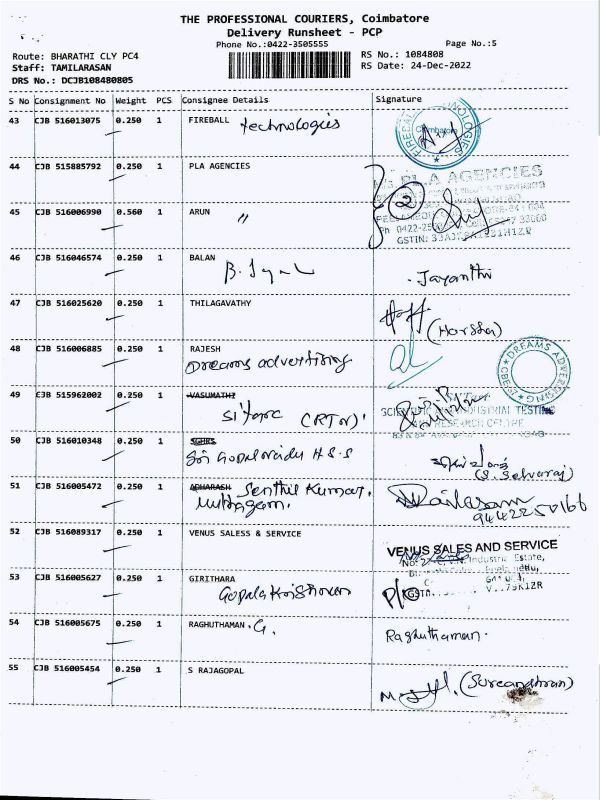 THE PROFESSIONAL COURIERS, Coimbatore
Delivery Runsheet - PCP
Phone No.:0422-3505555
Page No.:5
Route: BHARATHI CLY PC4
RS No.: 1084808
Staff: TAMILARASAN
RS Date: 24-Dec-2022
DRS No.: DCJB108480805
S No Consignment No Weight PCS Consignee Details Signature
43 CJB 516013075 0.250 1 FIREBALL technologies
44 CJB 515885792 0.250 1 PLA AGENCIES
PLA AGENCIES
2
45 CJB 516006990 0.560 1 ARUN "
GSTIN:
46 CJB 516046574 0.250 1 BALAN
Jayanthi
47 CJB 516025620 0.250 1 THILAGAVATHY
(Harsha)
48 CJB 516006885 0.250 1 RAJESH
Dreams advertising
DREAMS ADVERTISING
49 CJB 515962002 0.250 1 VASUMATHI
Sitarc (RTN)
SCIENTIFIC AND INDUSTRIAL TESTING
AND RESEARCH CENTRE
50 CJB 516010348 0.250 1 SGHRS
Sri Gopal naidu H.S.S
(S. Selvaraj)
51 CJB 516005472 0.250 1 Senthil Kumar.
9442250166
52 CJB 516089317 0.250 1 VENUS SALESS & SERVICE
VENUS SALES AND SERVICE
Industrial Estate,
53 CJB 516005627 0.250 1 GIRITHARA
Gopalakrishnan
54 CJB 516005675 0.250 1 RAGHUTHAMAN .G.
Raghuthaman.
55 CJB 516005454 0.250 1 S RAJAGOPAL
(Sureandhran)